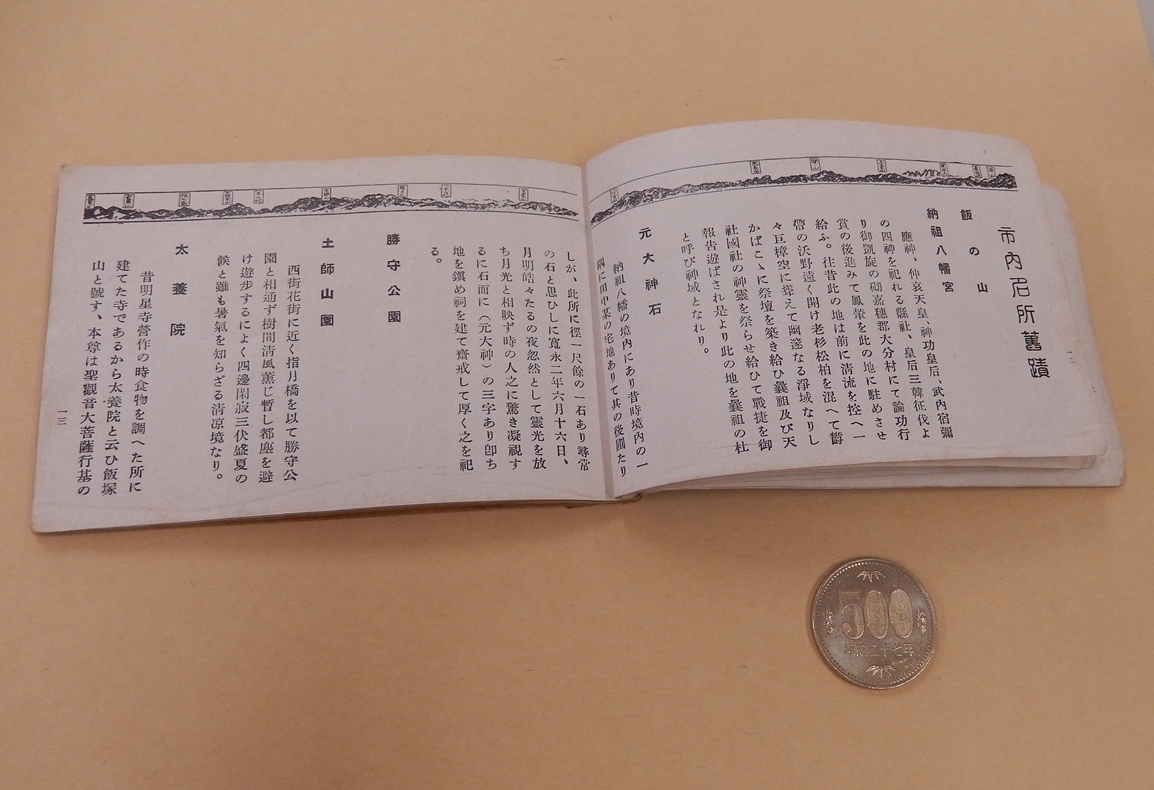 市内名所舊蹟
飯の山
納祖八幡宮
應神、仲哀天皇、神功皇后、武內宿彌
の四神を祀れる縣社、皇后三韓征伐よ
り御凱旋の砌嘉穗郡大分村にて論功行
賞の後進みて鳳輦を此の地に駐めさせ
給ふ。往昔此の地は前に淸流を控へ一
帶の沃野遠く開け老杉松柏を混へて欝
々巨樟空に聳えて幽邃なる淨域なりし
かばこゝに祭壇を築き給ひ曩祖及び天
社國社の神靈を祭らせ給ひて戰捷を御
報告遊ばされ是より此の地を曩祖の杜
と呼び神域となれり。
元大神石
納祖八幡の境內にあり昔時境內の一
隅に田中某の宅地ありて其の後圃たり
しが、此所に徑一尺餘の一石あり尋常
の石と思ひしに寬永二年六月十六日、
月明皓々たるの夜忽然として靈光を放
ち月光と相映ず時の人之に驚き凝視す
るに石面に（元大神）の三字あり卽ち
地を鎭め祠を建て齋戒して厚く之を祀
る。
勝守公園
土師山園
西街花街に近く指月橋を以て勝守公
園と相通ず樹間淸風薰じ暫し都塵を避
け遊步するによく四邊閑寂三伏盛夏の
候と雖も暑氣を知らざる淸凉境なり。
太養院
昔明星寺營作の時食物を調へた所に
建てた寺であるから太養院と云ひ飯塚
山と號す、本尊は聖觀音大菩薩行基の
一三
500
平成二十七年